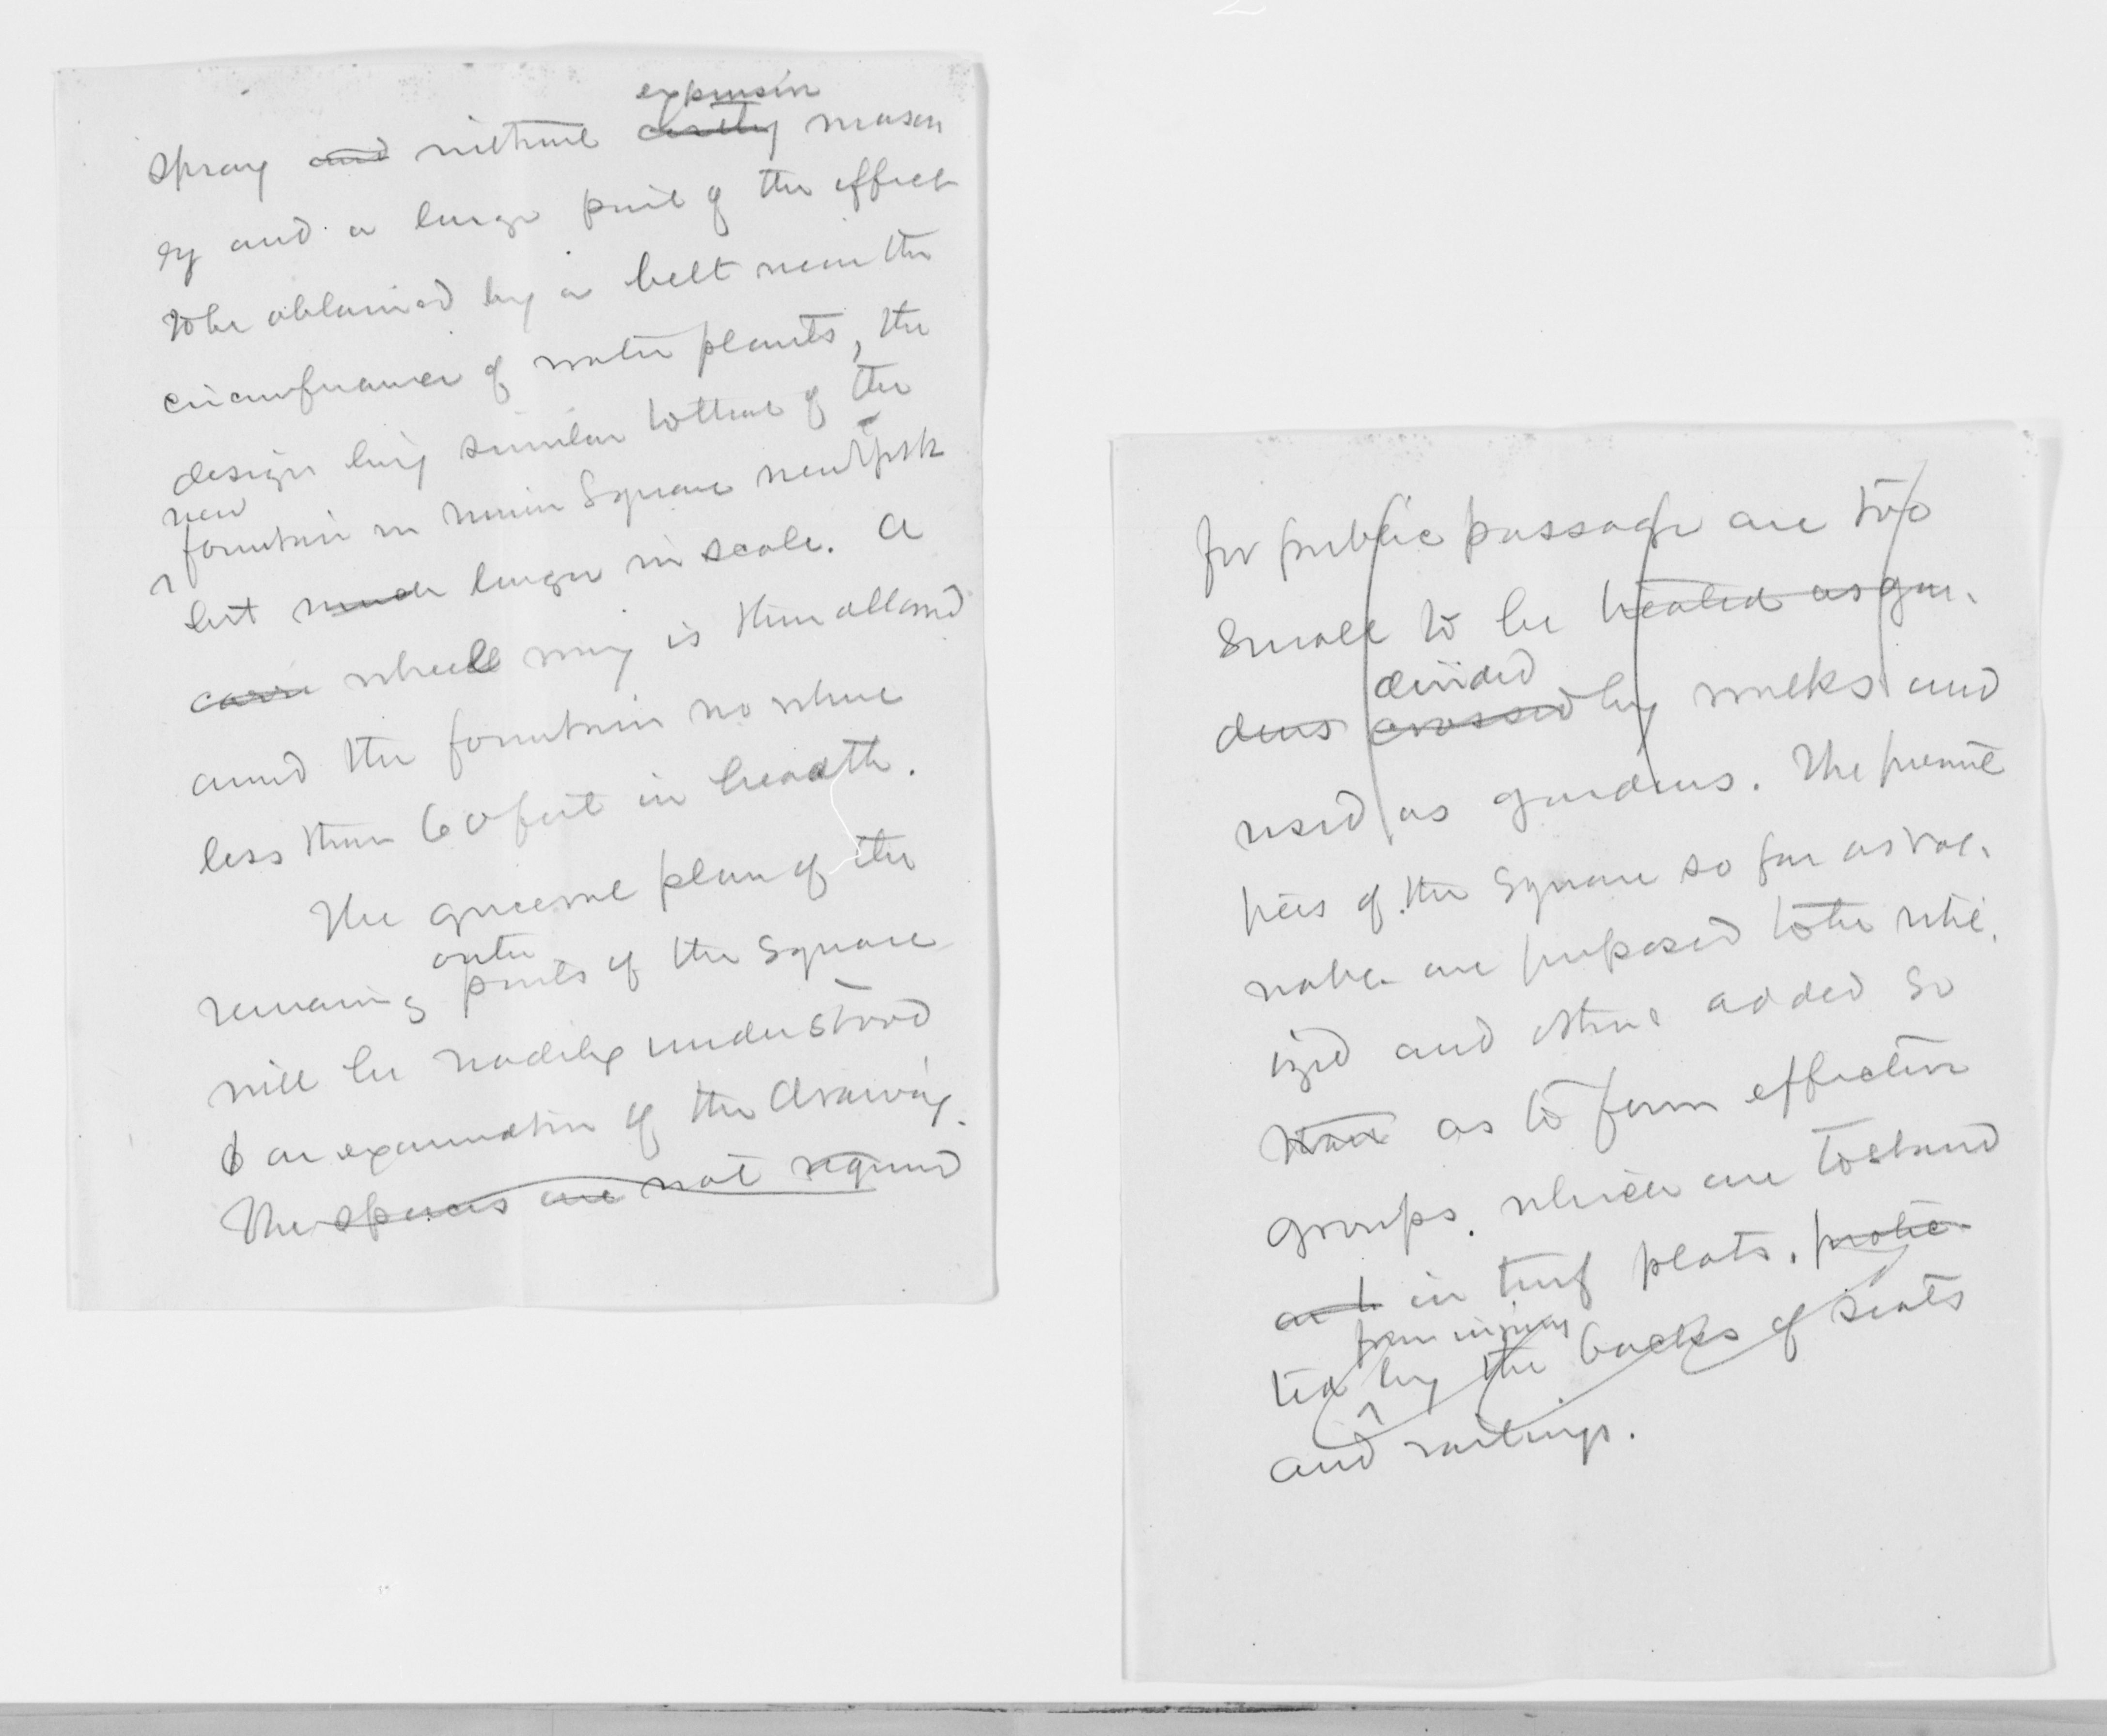 expensive
spray and without costly mason
ry and a large part of the effect
to be obtained by a belt near the
circumference of water plants, the
design being similar to that of the
new
fountain in Union Square New York
but much larger in scale. A
carri wheel way is then allowed
around the fountain no where
less than 60 feet in breadth.
The general plan of the
outer
remaining parts of the Square
will be readily understood
by an examination of the drawing.
The spaces are not required
for public passage are too
small to be treated as gar-
divided
dens crossed by walks and
used as gardens. The present
trees of the Square so far as val-
uable are proposed to be util-
ized and others added so
as to form effective
groups. which are to stand
and in turf plats. protec-
from injury
ted by the backs of seats
and railings.